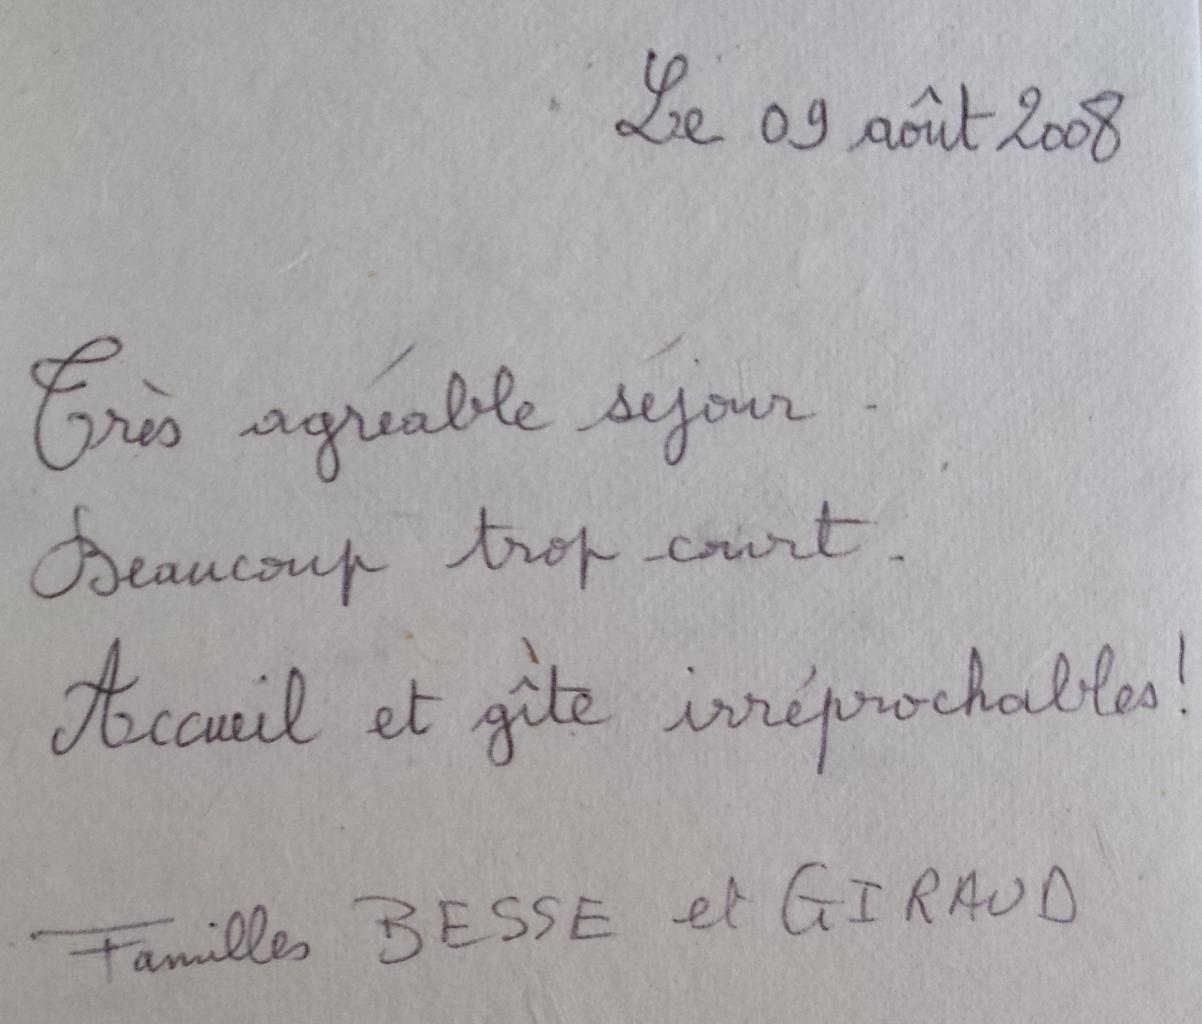 Le 09 août 2008
Très agréable séjour.
Beaucoup trop court.
Accueil et gîte irréprochables!
Familles BESSE et GIRAUD